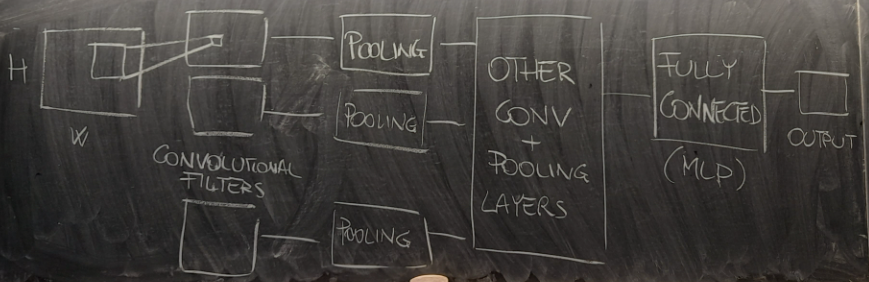 H
W
CONVOLUTIONAL
FILTERS
POOLING
POOLING
POOLING
OTHER
CONV
+
POOLING
LAYERS
FULLY
CONNECTED
(MLP)
OUTPUT